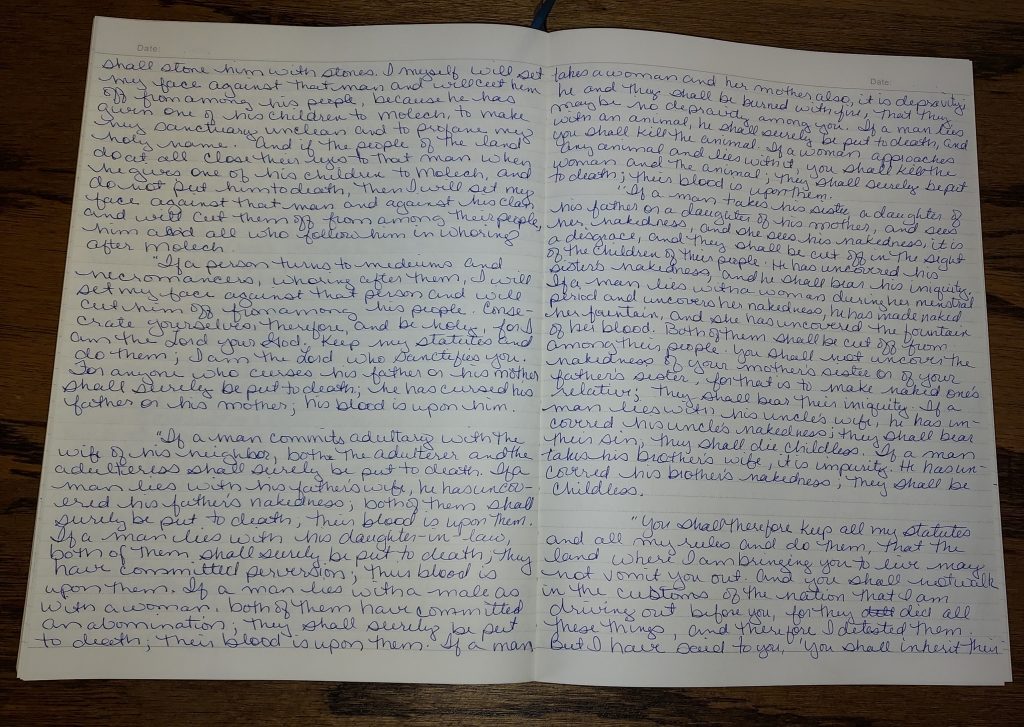 Date:
shall stone him with stones. I myself will set
my face against that man and will cut him
off from among his people, because he has
given one of his children to Molech, to make
my sanctuary unclean and to profane my
holy name. And if the people of the land
do at all close their eyes to that man when
he gives one of his children to Molech, and
do not put him to death, then I will set my
face against that man and against his clan
and will cut them off from among their people,
him and all who follow him in whoring
after Molech.
"If a person turns to mediums and
necromancers, whoring after them, I will
set my face against that person and will
cut him off from among his people. Conse-
crate yourselves, therefore, and be holy, for I
am the Lord your God. Keep my statutes and
do them; I am the Lord who sanctifies you.
For anyone who curses his father or his mother
shall surely be put to death; he has cursed his
father or his mother; his blood is upon him.
"If a man commits adultary with the
wife of his neighbor, both the adulterer and the
adulteress shall surely be put to death. If a
man lies with his father's wife, he has uncov-
ered his father's nakedness; both of them shall
surely be put to death, their blood is upon them.
If a man lies with his daughter-in-law,
both of them shall surely be put to death; they
have committed perversion; their blood is
upon them. If a man lies with a male as
with a woman, both of them have committed
an abomination; they shall surely be put
to death; their blood is upon them. If a man
Date:
takes a woman and her mother also, it is depravity;
he and they shall be burned with fire, that they
may be no depravity among you. If a man lies
with an animal, he shall surely be put to death, and
you shall kill the animal. If a woman approaches
any animal and lies with it, you shall kill the
woman and the animal; they shall surely be put
to death; their blood is upon them.
"If a man takes his sister, a daughter of
his father or a daughter of his mother, and sees
her nakedness, and she sees his nakedness, it is
a disgrace, and they shall be cut off in the sight
of the children of their people. He has uncovered his
sister's nakedness, and he shall bear his iniquity.
If a man lies with a woman during her menstrual
period and uncovers her nakedness, he has made naked
her fountain, and she has uncovered the fountain
of her blood. Both of them shall be cut off from
among their people. You shall not uncover the
nakedness of your mother's sister or of your
father's sister, for that is to make naked one's
relative; they shall bear their iniquity. If a
man lies with his uncle's wife, he has un-
covered his uncle's nakedness; they shall bear
their sin, they shall die childless. If a man
takes his brother's wife, it is impurity. He has un-
covered his brother's nakedness; they shall be
childless.
"You shall therefore keep all my statutes
and all my rules and do them, that the
land where I am bringing you to live may
not vomit you out. And you shall not walk
in the customs of the nation that I am
driving out before you, for they did all
these things, and therefore I detested them.
But I have said to you, "You shall inherit their